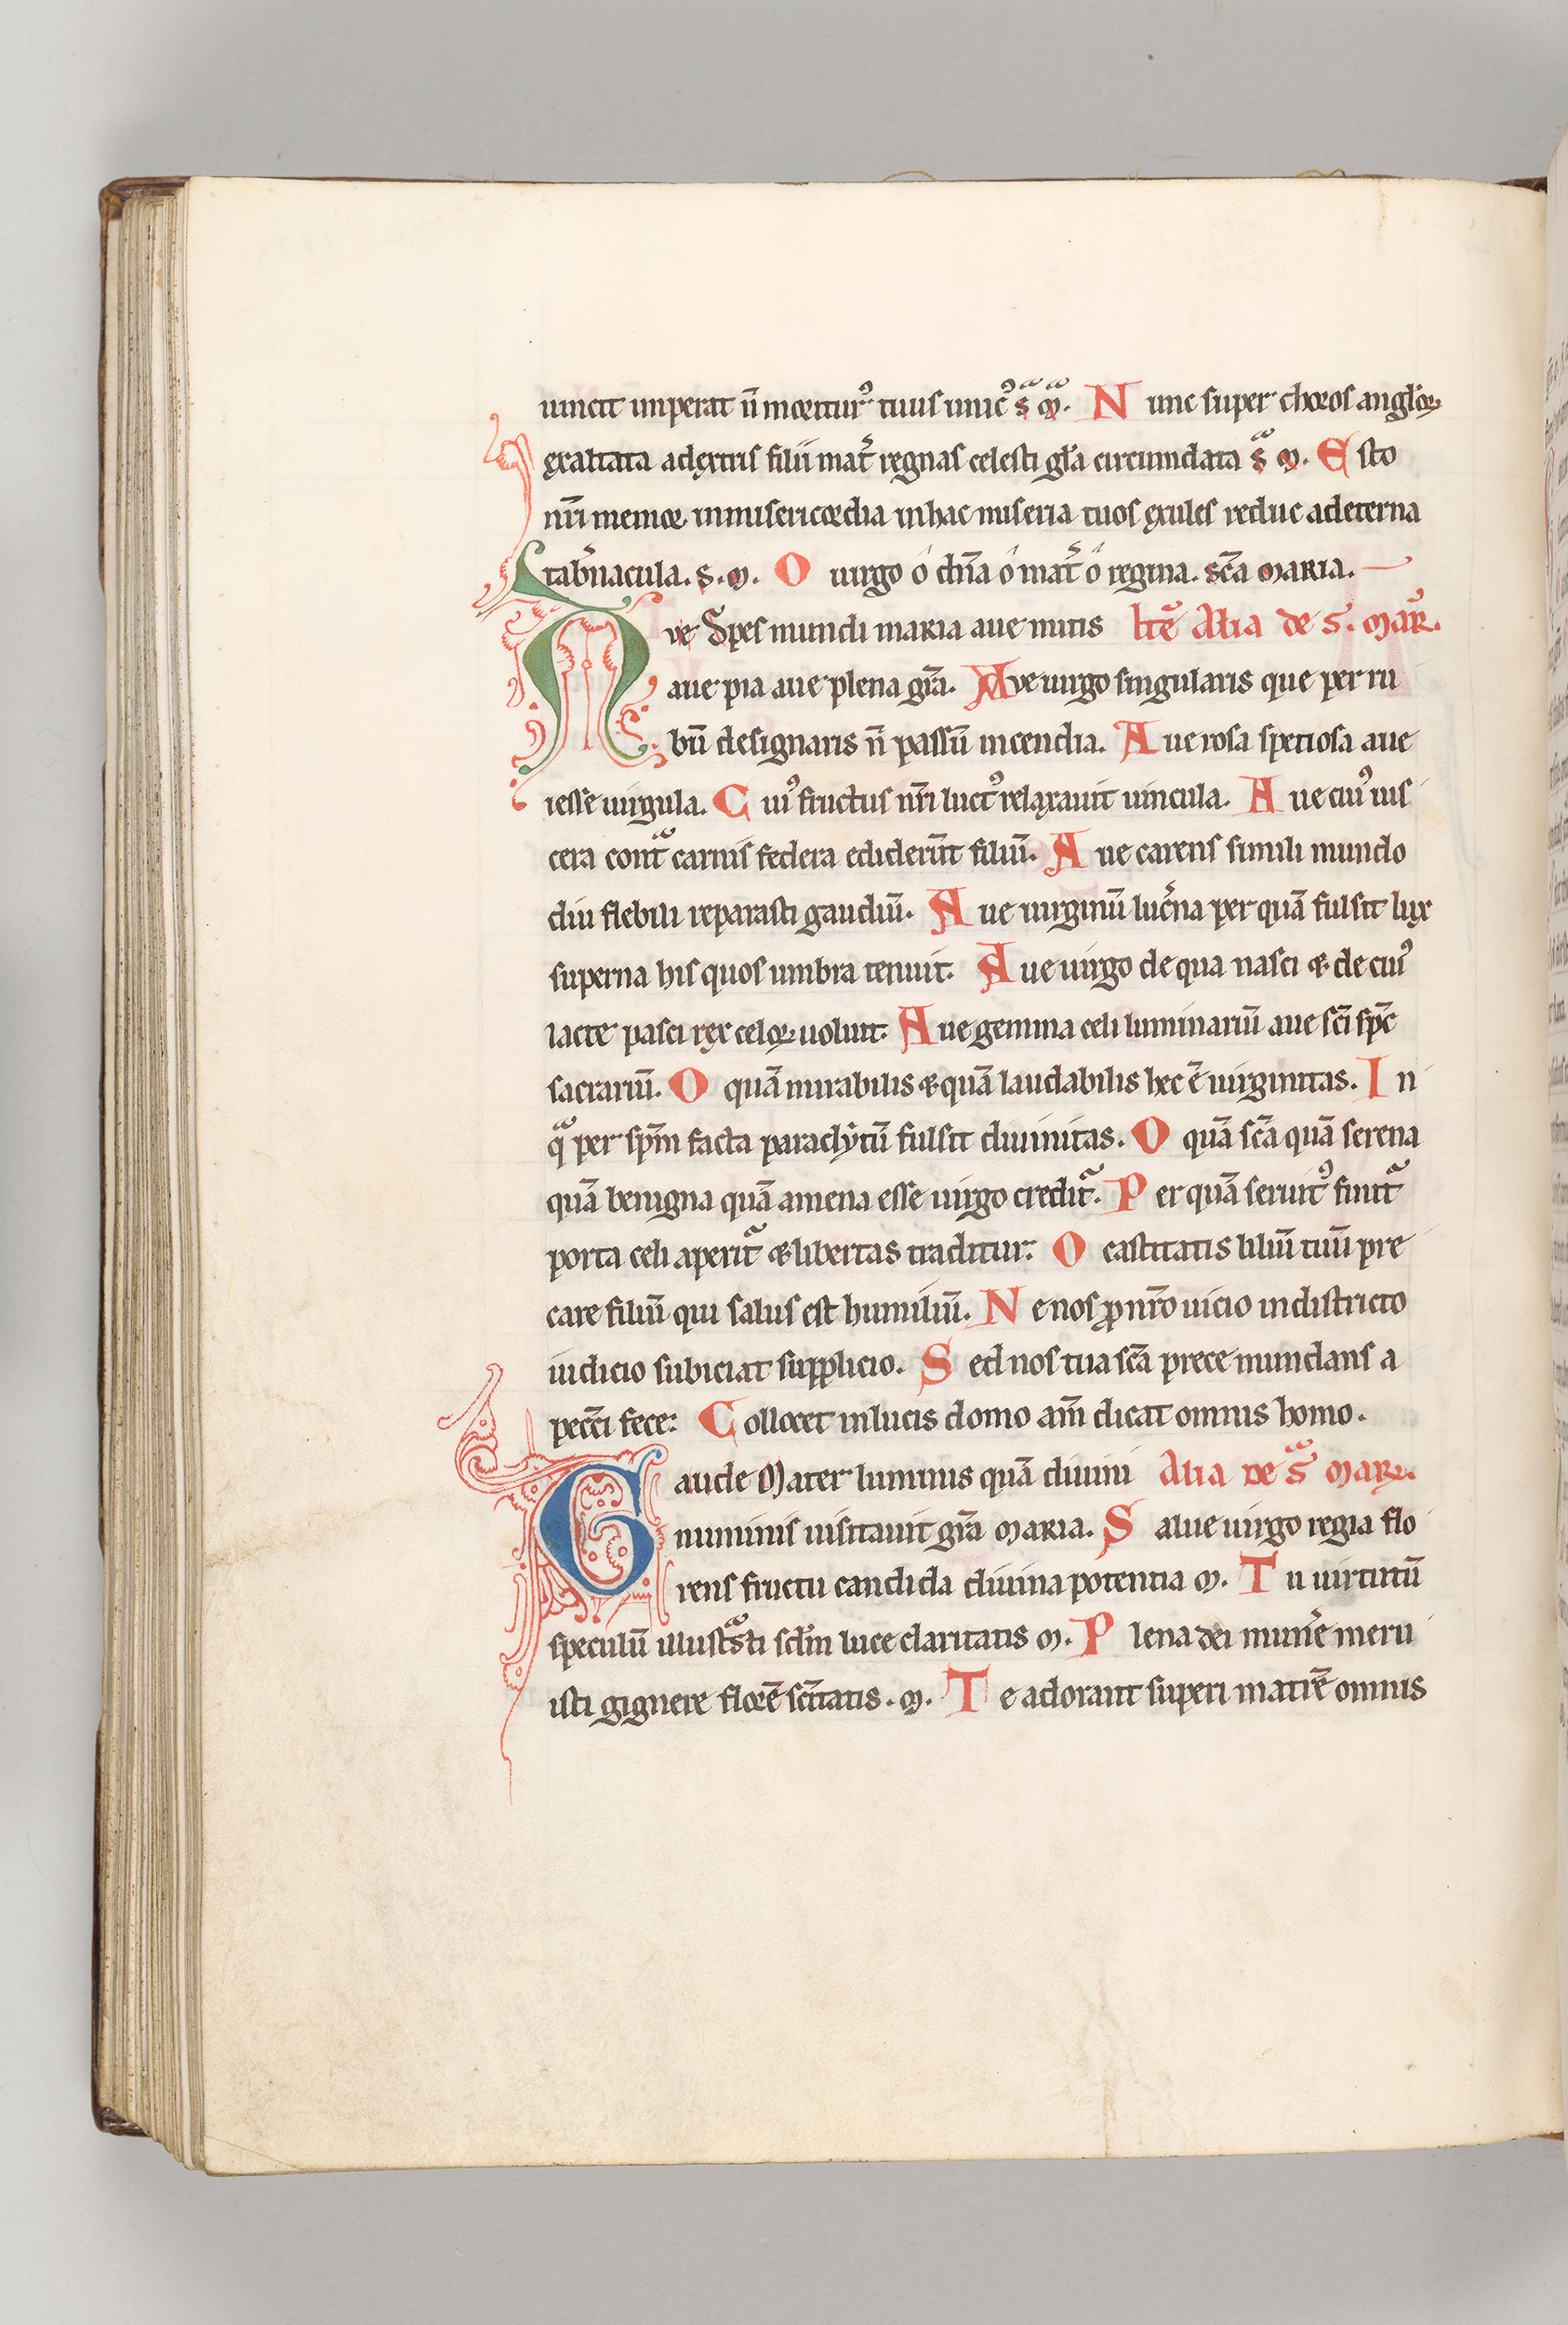 uincit imperat n̄ moriturꝰ tuus unicꝰ sᵃ mᵃ. Nunc super choros angl'oꝝ
exaltata adextris filii mat̄ regnas celesti gl'a circumdata sᵃ m. Esto
nr̄i memor inmisericordia inhac miseria tuos exules reduc adeterna
tab'nacula. s. m. O uirgo ó dn̄a ó mat̄ ó regina. sc̄a maria.
Ave Spes mundi maria aue mitis Itē Alia de s. mar.
aue pia aue plena gr̄a. Ave uirgo singularis que per ru
bū designaris n̄ passū incendia. Aue rosa speciosa aue
iesse uirgula. Cuiꝰ fructus nr̄i luctꝰ relaxauit uincula. Aue cuiꝰ uis
cera contᵃ carnis federa ediderūt filiū. Aue carens simili mundo
diu flebili reparasti gaudiū. Aue uirginū luc'na per quā fulsit lux
superna his quos umbra tenuit. Aue uirgo de qua nasci & de cuiꝰ
lacte pasci rex celoꝝ uoluit. Aue gemma celi luminariū aue sc̄i sp̄c
sacrariū. O quā mirabilis & quā laudabilis hec ē uirginitas. In
qᵃ per sp̄m facta paraclẏtū fulsit diuinitas. O quā sc̄a quā serena
quā benigna quā amena esse uirgo creditᷓ. Per quā seruitꝰ finitᷓ
porta celi aperitᷓ & libertas traditur. O castitatis liliū tuū pre
care filiū qui salus est humiliū. Ne nos ꝓ nr̄o uicio indistricto
iudicio subiciat supplicio. Sed nos tua sc̄a prece mundans a
pecc̄i fece: Collocet inlucis domo am̄ dicat omnis homo.
Gaude Mater luminis quā diuini Alia de sᵃ mar.
numinis uisitauit gr̄a maria. Salue uirgo regia flo
rens fructu candida diuina potentia m. Tu uirtutū
speculū illustᵃsti scl'm luce claritatis m. Plena dei mun'e meru
isti gignere florē sc̄itatis. m. Te adorant superi matrē omnis